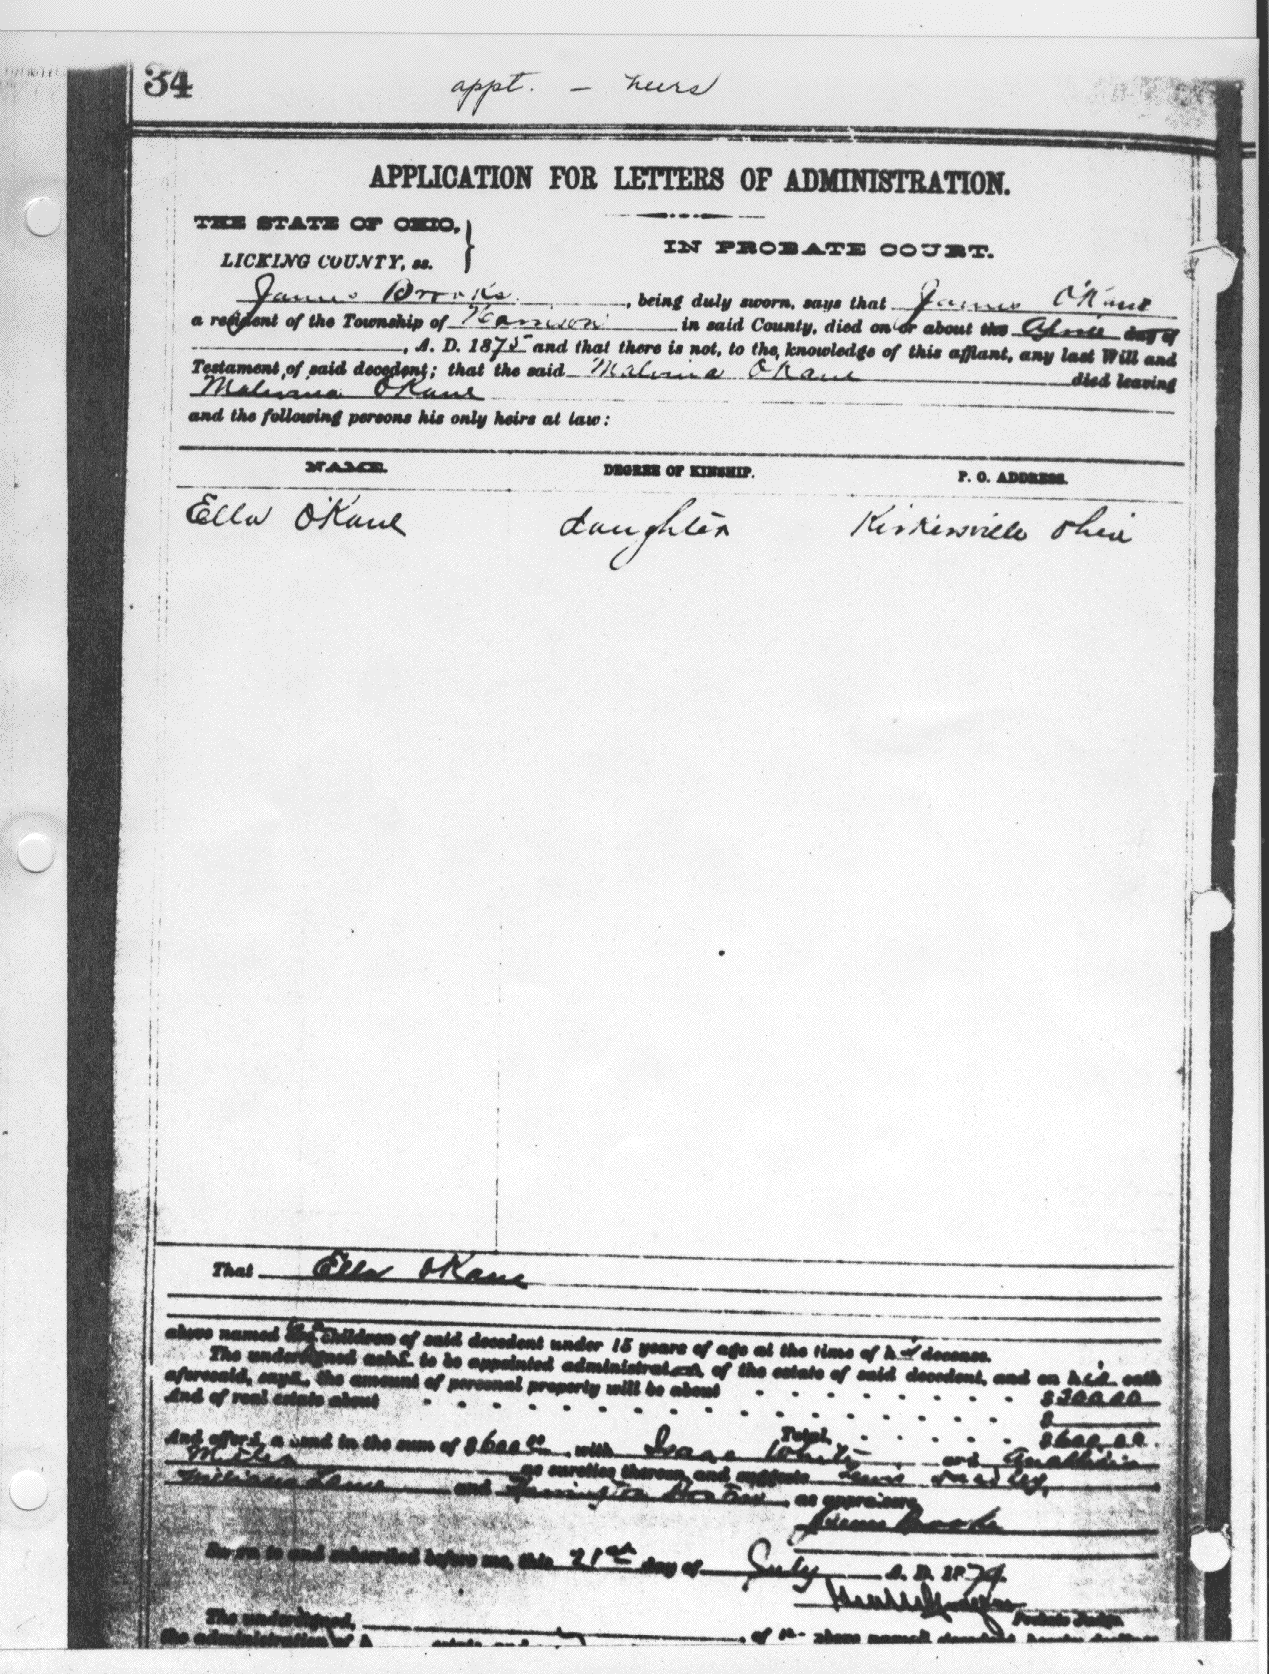 34
appt. - heirs
APPLICATION FOR LETTERS OF ADMINISTRATION.
THE STATE OF OHIO,
IN PROBATE COURT.
LICKING COUNTY, ss.
James Brooks, being duly sworn, says that James O'Kane
a resident of the Township of Harrison in said County, died on or about the April day of
, A. D. 1875 and that there is not, to the knowledge of this affiant, any last Will and
Testament of said decedent; that the said Malvina O'Kane died leaving
Malvina O'Kane
and the following persons his only heirs at law:
NAME. DEGREE OF KINSHIP. P. O. ADDRESS.
Ella O'Kane daughter Kirkersville Ohio
That Ella O'Kane
above named children of said decedent under 15 years of age at the time of his decease.
The undersigned asks to be appointed administrator of the estate of said decedent, and on his oath
aforesaid, says, the amount of personal property will be about $300.00
And of real estate about $
Total, $600.00
And offers a bond in the sum of $600 00, with Isaac White and
as sureties thereon, and suggests Lewis
and , as appraisers.
James Brooks
Sworn to and subscribed before me, this 21st day of July A. D. 1879.
Probate Judge.
The undersigned, , of the above named decedent, hereby declines
the administration of h estate and